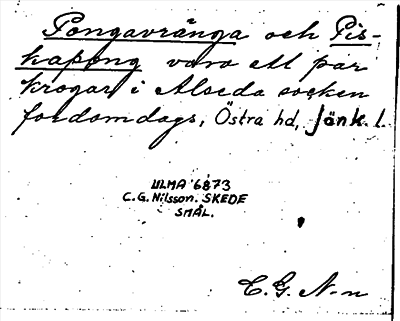 Pongavränga och Pis-
kapong vara ett par
krogar i Alseda socken
fordomdags, Östra hd, Jönk. l.
ULMA 6873
C.G. Nilsson. SKEDE
SMÅL.
C.G. N-n